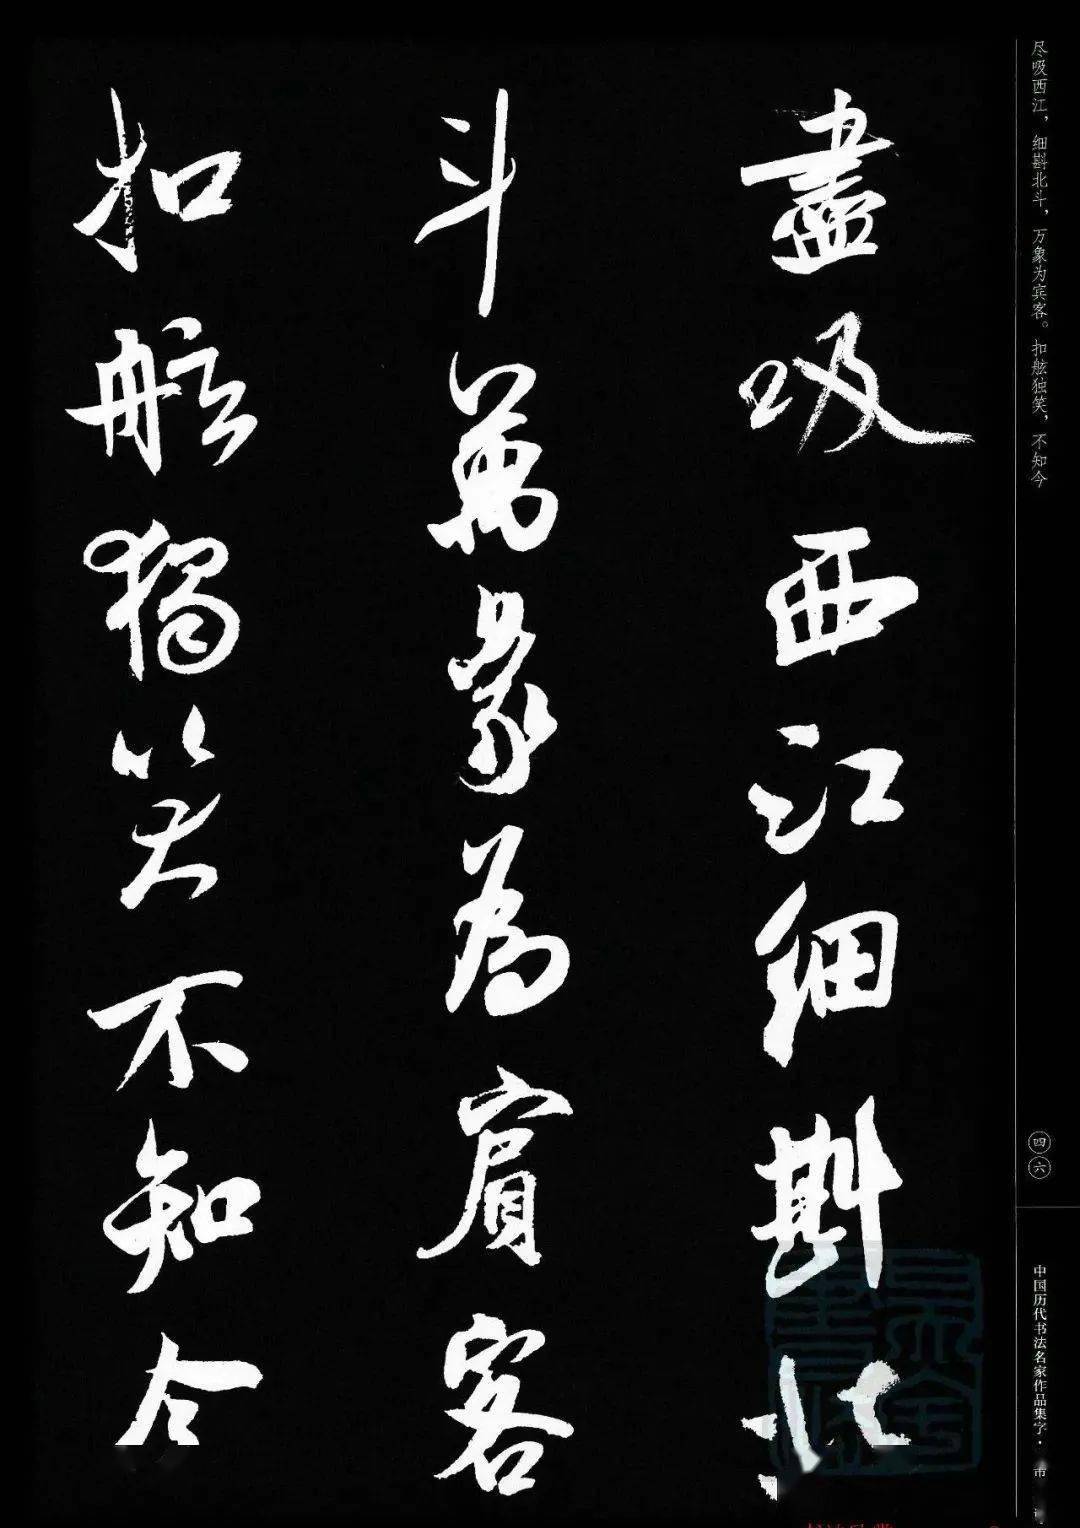 尽吸西江，细斟北斗，万象为宾客。扣舷独笑，不知今
四六
中国历代书法名家作品集字·
盡吸西江細斟北
斗萬象為賓客
扣舷獨笑不知今